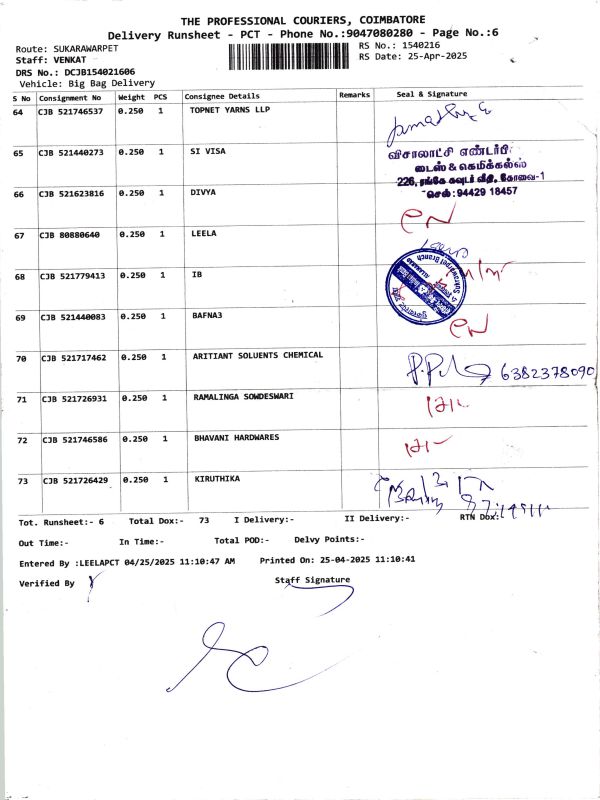 THE PROFESSIONAL COURIERS, COIMBATORE
Delivery Runsheet - PCT - Phone No.:9047080280 - Page No.:6
Route: SUKARAWARPET
RS No.: 1540216
Staff: VENKAT
RS Date: 25-Apr-2025
DRS No.: DCJB154021606
Vehicle: Big Bag Delivery
S No Consignment No Weight PCS Consignee Details Remarks Seal & Signature
64 CJB 521746537 0.250 1 TOPNET YARNS LLP
65 CJB 521440273 0.250 1 SI VISA
விசாலாட்சி எண்டர்பி
டைஸ் & கெமிக்கல்ஸ்
226, ரங்கே கவுடர் வீதி, கோவை-1
செல்: 94429 18457
66 CJB 521623816 0.250 1 DIVYA
67 CJB 80880640 0.250 1 LEELA
68 CJB 521779413 0.250 1 IB
Sukrawarpet Branch
69 CJB 521440083 0.250 1 BAFNA3
70 CJB 521717462 0.250 1 ARITIANT SOLUENTS CHEMICAL
6382378090
71 CJB 521726931 0.250 1 RAMALINGA SOWDESWARI
72 CJB 521746586 0.250 1 BHAVANI HARDWARES
73 CJB 521726429 0.250 1 KIRUTHIKA
Tot. Runsheet:- 6 Total Dox:- 73 I Delivery:- II Delivery:- RTN Dox:
Out Time:- In Time:- Total POD:- Delvy Points:-
Entered By :LEELAPCT 04/25/2025 11:10:47 AM Printed On: 25-04-2025 11:10:41
Verified By Staff Signature